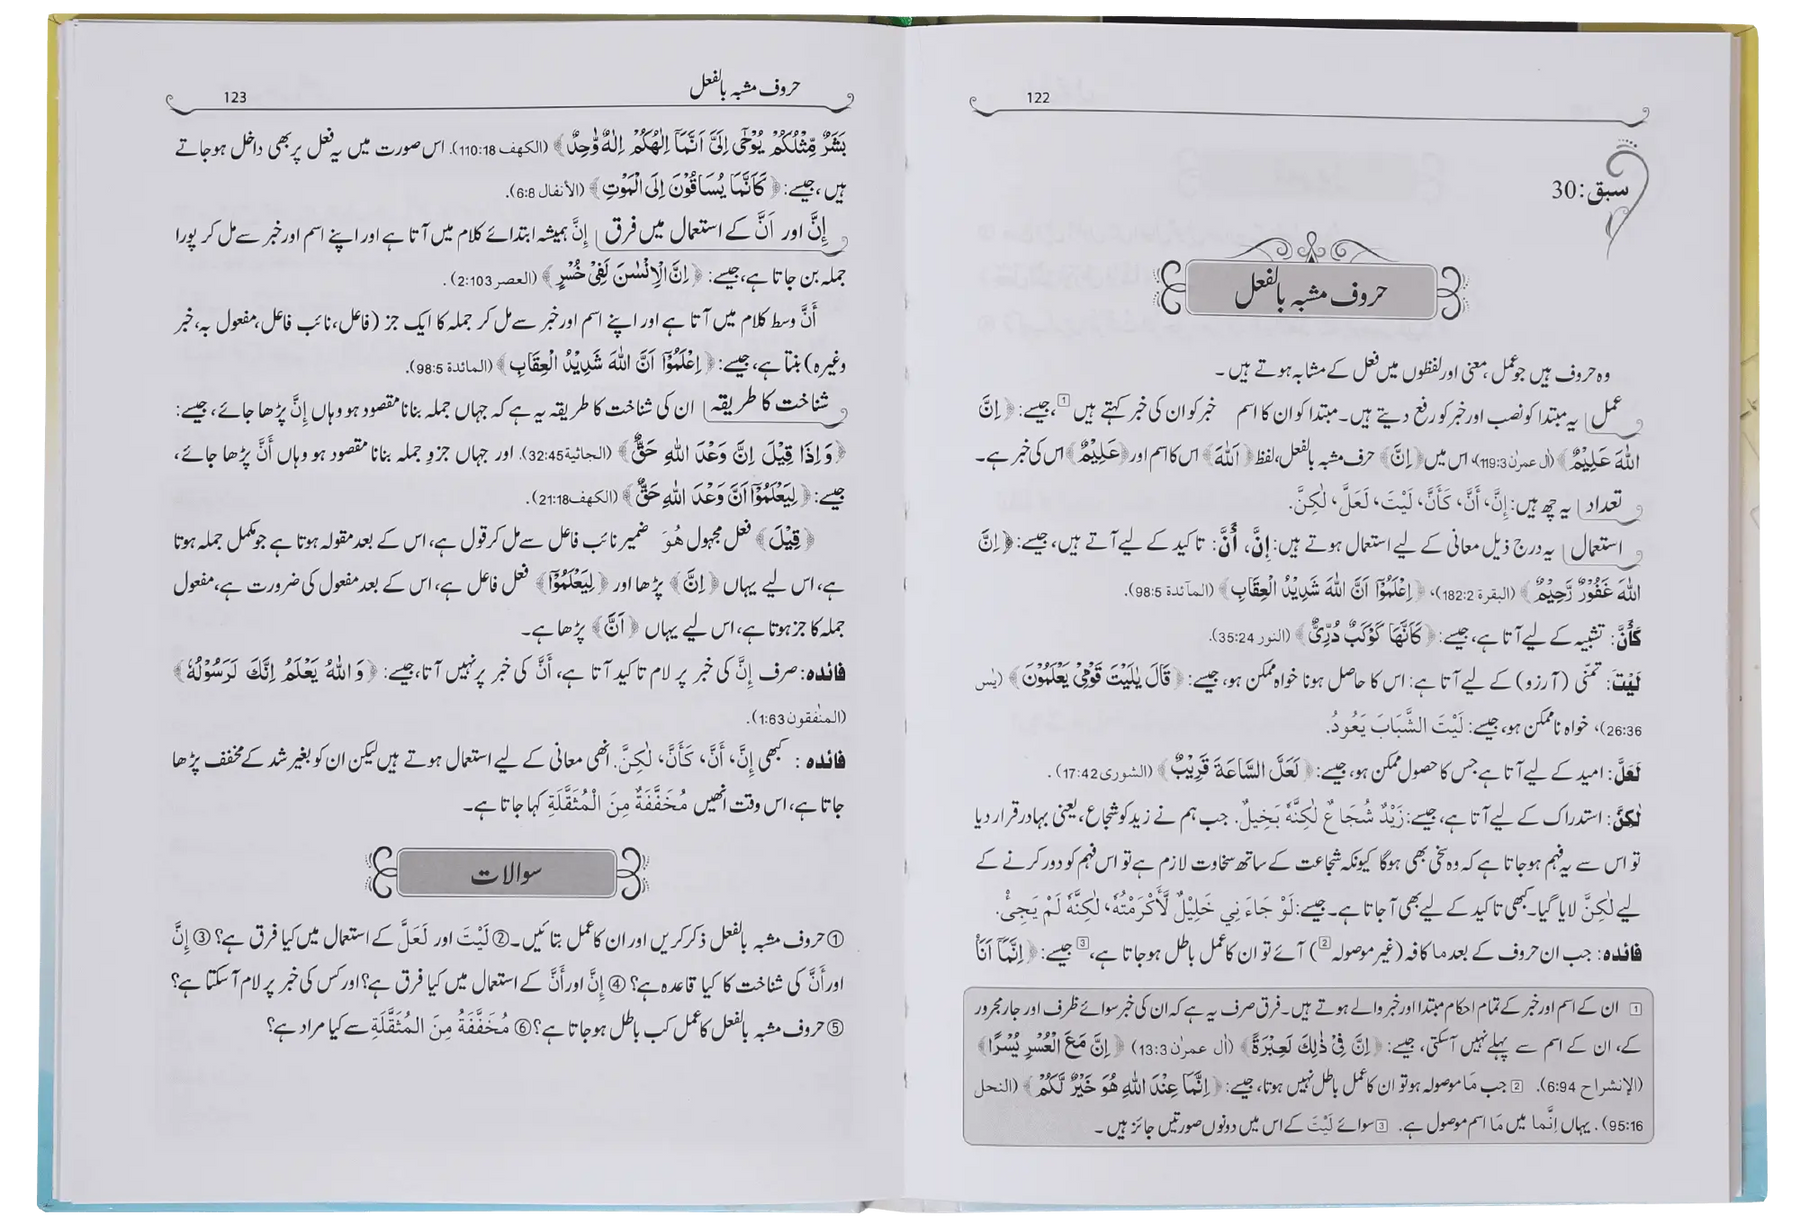 122
سبق: 30
حروف مشبہ بالفعل
وہ حروف ہیں جو عمل، معنی اور لفظوں میں فعل کے مشابہ ہوتے ہیں ۔
عمل یہ مبتدا کو نصب اور خبر کو رفع دیتے ہیں۔ مبتدا کو ان کا اسم خبر کو ان کی خبر کہتے ہیں 1، جیسے: ﴿ اِنَّ
اللّٰهَ عَلِيْمٌۢ ﴾ (اٰل عمرٰن 119:3)، اس میں ﴿ اِنَّ ﴾ حرف مشبہ بالفعل، لفظ ﴿ اَللّٰهَ ﴾ اس کا اسم اور ﴿ عَلِيْمٌۢ ﴾ اس کی خبر ہے۔
تعداد یہ چھ ہیں: إِنَّ، أَنَّ، كَأَنَّ، لَيْتَ، لَعَلَّ، لٰكِنَّ.
استعمال یہ درج ذیل معانی کے لیے استعمال ہوتے ہیں: إِنَّ، أَنَّ: تاکید کے لیے آتے ہیں، جیسے: ﴿ اِنَّ
اللّٰهَ غَفُوْرٌ رَّحِيْمٌ ﴾ (البقرة 182:2)، ﴿ اِعْلَمُوْۤا اَنَّ اللّٰهَ شَدِيْدُ الْعِقَابِ ﴾ (المآئدة 98:5).
كَأَنَّ: تشبیہ کے لیے آتا ہے، جیسے: ﴿ كَاَنَّهَا كَوْكَبٌ دُرِّيٌّ ﴾ (النور 35:24).
لَيْتَ: تمنّی (آرزو) کے لیے آتا ہے: اس کا حاصل ہونا خواہ ممکن ہو، جیسے: ﴿ قَالَ يٰلَيْتَ قَوْمِيْ يَعْلَمُوْنَ ﴾ (يٰس
26:36)، خواہ ناممکن ہو، جیسے: لَيْتَ الشَّبَابَ يَعُودُ.
لَعَلَّ: امید کے لیے آتا ہے جس کا حصول ممکن ہو، جیسے: ﴿ لَعَلَّ السَّاعَةَ قَرِيْبٌ ﴾ (الشورى 17:42) .
لٰكِنَّ: استدراک کے لیے آتا ہے، جیسے: زَيْدٌ شُجَاعٌ لٰكِنَّهٗ بَخِيلٌ. جب ہم نے زید کو شجاع، یعنی بہادر قرار دیا
تو اس سے یہ فہم ہو جاتا ہے کہ وہ سخی بھی ہوگا کیونکہ شجاعت کے ساتھ سخاوت لازم ہے تو اس فہم کو دور کرنے کے
لیے لٰكِنَّ لایا گیا۔ کبھی تاکید کے لیے بھی آ جاتا ہے۔ جیسے: لَوْ جَاءَنِي خَلِيْلٌ لَّأَكْرَمْتُهٗ، لٰكِنَّهٗ لَمْ يَجِئْ.
فائدہ: جب ان حروف کے بعد ما کافہ (غیر موصولہ 2) آئے تو ان کا عمل باطل ہو جاتا ہے، 3 جیسے: ﴿ اِنَّمَاۤ اَنَا۠
1 ان کے اسم اور خبر کے تمام احکام مبتدا اور خبر والے ہوتے ہیں۔ فرق صرف یہ ہے کہ ان کی خبر سوائے ظرف اور جار مجرور
کے، ان کے اسم سے پہلے نہیں آسکتی، جیسے: ﴿ اِنَّ فِيْ ذٰلِكَ لَعِبْرَةً ﴾ (اٰل عمرٰن 13:3) ﴿ اِنَّ مَعَ الْعُسْرِ يُسْرًا ﴾
(الإنشراح 6:94). 2 جب مَا موصولہ ہو تو ان کا عمل باطل نہیں ہوتا، جیسے: ﴿ اِنَّمَا عِنْدَ اللّٰهِ هُوَ خَيْرٌ لَّكُمْ ﴾ (النحل
95:16) . یہاں اِنَّما میں مَا اسم موصول ہے. 3 سوائے لَيْتَ کے اس میں دونوں صورتیں جائز ہیں ۔
حروف مشبہ بالفعل
123
بَشَرٌ مِّثْلُكُمْ يُوْحٰۤى اِلَيَّ اَنَّمَاۤ اِلٰهُكُمْ اِلٰهٌ وَّاحِدٌ ﴾ (الكهف 110:18). اس صورت میں یہ فعل پر بھی داخل ہو جاتے
ہیں، جیسے: ﴿ كَاَنَّمَا يُسَاقُوْنَ اِلَى الْمَوْتِ ﴾ (الأنفال 6:8).
إِنَّ اور اَنَّ کے استعمال میں فرق إِنَّ ہمیشہ ابتدائے کلام میں آتا ہے اور اپنے اسم اور خبر سے مل کر پورا
جملہ بن جاتا ہے، جیسے: ﴿ اِنَّ الْاِنْسٰنَ لَفِيْ خُسْرٍ ﴾ (العصر 2:103) .
أَنَّ وسط کلام میں آتا ہے اور اپنے اسم اور خبر سے مل کر جملہ کا ایک جز (فاعل، نائب فاعل، مفعول بہ، خبر
وغیرہ) بنتا ہے، جیسے: ﴿ اِعْلَمُوْۤا اَنَّ اللّٰهَ شَدِيْدُ الْعِقَابِ ﴾ (المائدة 98:5).
شناخت کا طریقہ ان کی شناخت کا طریقہ یہ ہے کہ جہاں جملہ بنانا مقصود ہو وہاں إِنَّ پڑھا جائے، جیسے:
﴿ وَاِذَا قِيْلَ اِنَّ وَعْدَ اللّٰهِ حَقٌّ ﴾ (الجاثية 32:45). اور جہاں جزوِ جملہ بنانا مقصود ہو وہاں أَنَّ پڑھا جائے،
جیسے: ﴿ لِيَعْلَمُوْۤا اَنَّ وَعْدَ اللّٰهِ حَقٌّ ﴾ (الكهف 21:18).
﴿ قِيْلَ ﴾ فعل مجہول هُوَ ضمیر نائب فاعل سے مل کر قول ہے، اس کے بعد مقولہ ہوتا ہے جو مکمل جملہ ہوتا
ہے، اس لیے یہاں ﴿ اِنَّ ﴾ پڑھا اور ﴿ لِيَعْلَمُوْۤا ﴾ فعل فاعل ہے، اس کے بعد مفعول کی ضرورت ہے، مفعول
جملہ کا جز ہوتا ہے، اس لیے یہاں ﴿ اَنَّ ﴾ پڑھا ہے۔
فائدہ: صرف إِنَّ کی خبر پر لام تاکید آتا ہے، أَنَّ کی خبر پر نہیں آتا، جیسے: ﴿ وَاللّٰهُ يَعْلَمُ اِنَّكَ لَرَسُوْلُهٗ ﴾
(المنٰفقون 1:63).
فائدہ : کبھی إِنَّ، أَنَّ، كَأَنَّ، لٰكِنَّ. انھی معانی کے لیے استعمال ہوتے ہیں لیکن ان کو بغیر شد کے مخفف پڑھا
جاتا ہے، اس وقت انھیں مُخَفَّفَةٌ مِنَ الْمُثَقَّلَةِ کہا جاتا ہے۔
سوالات
① حروف مشبہ بالفعل ذکر کریں اور ان کا عمل بتائیں۔ ② لَيْتَ اور لَعَلَّ کے استعمال میں کیا فرق ہے؟ ③ إِنَّ
اور أَنَّ کی شناخت کا کیا قاعدہ ہے؟ ④ إِنَّ اور أَنَّ کے استعمال میں کیا فرق ہے؟ اور کس کی خبر پر لام آ سکتا ہے؟
⑤ حروف مشبہ بالفعل کا عمل کب باطل ہو جاتا ہے؟ ⑥ مُخَفَّفَةُ مِنَ المُثَقَّلَةِ سے کیا مراد ہے؟